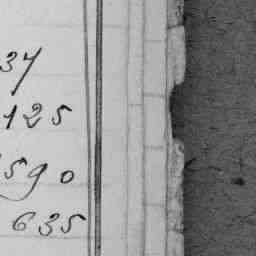 37
125
590
635